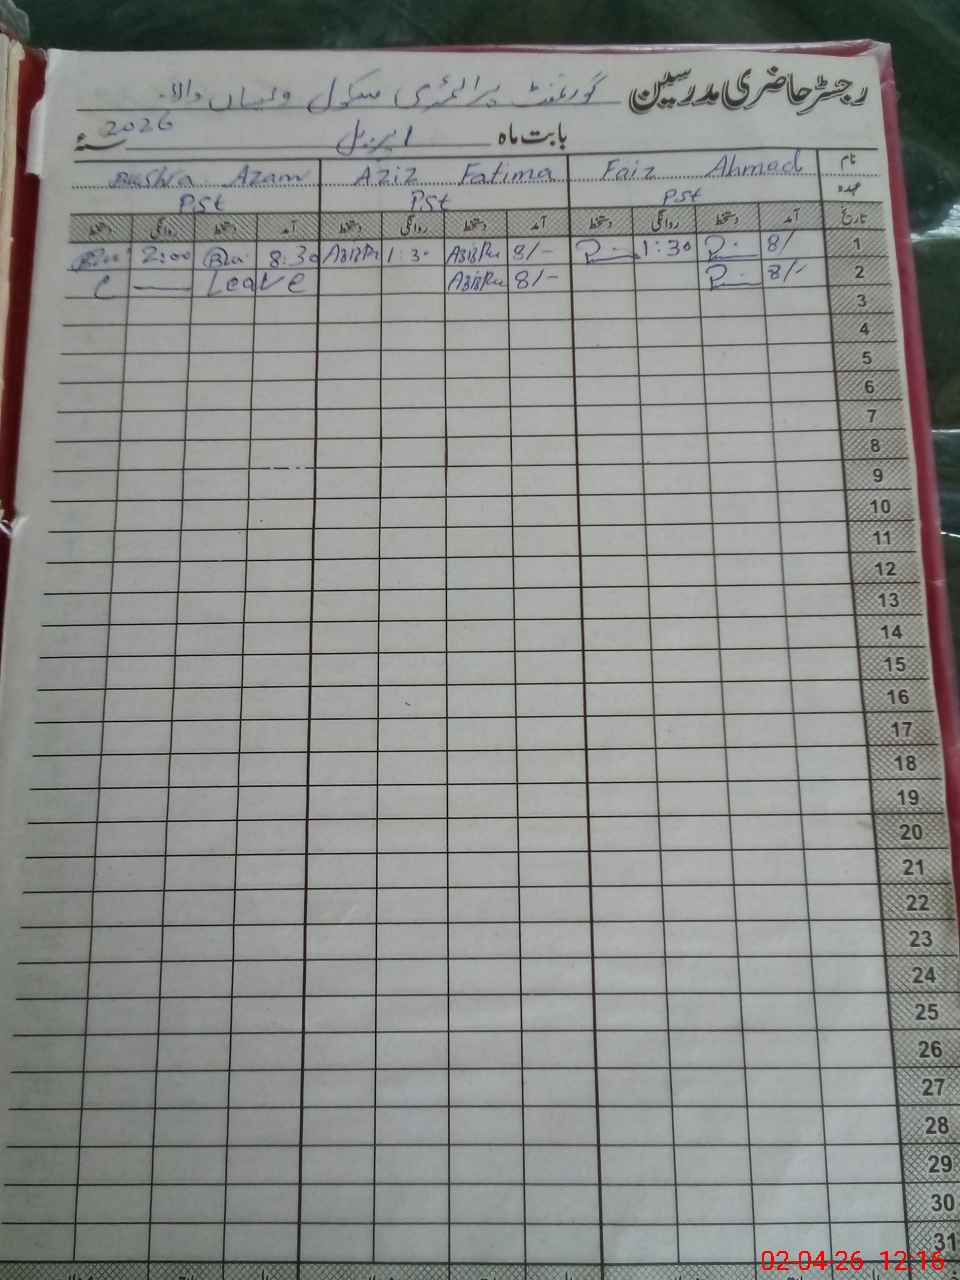 رجسٹر حاضری مدرسین گورنمنٹ پرائمری سکول والا
بابت ماہ اپریل 2026 سنہ
نام Faiz Ahmed Aziz Fatima Bushra Azam
عہدہ PSt PSt PSt
تاریخ آمد دستخط روانگی دستخط آمد دستخط روانگی دستخط آمد دستخط روانگی دستخط
1 8/ 1:30 8/- 1:30 8:30 2:00
2 8/- 8/- Leave C
3
4
5
6
7
8
9
10
11
12
13
14
15
16
17
18
19
20
21
22
23
24
25
26
27
28
29
30
31
02-04-26 12:16